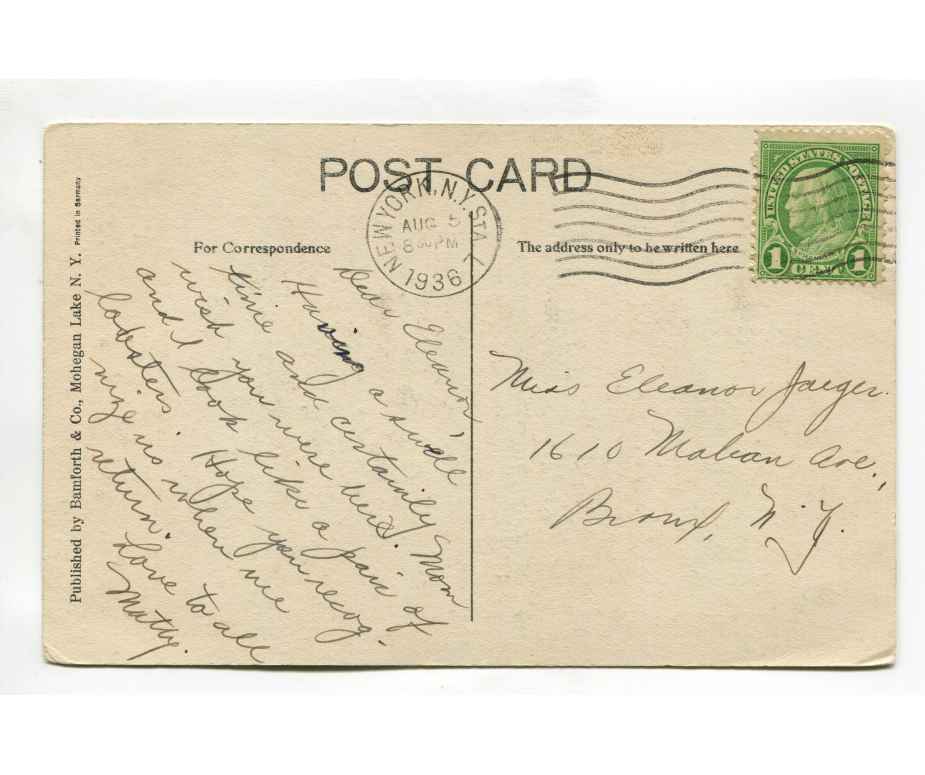 POST CARD
NEW YORK, N.Y. STA. 1
AUG 5
8 30 PM
1936
UNITED STATES POSTAGE
1 CENT 1
For Correspondence
The address only to be written here
Dear Eleanor
Having a swell
time and certainly
wish you were here. Mom
and I look like a pair of
lobsters. Hope you recog-
nize us when we
return.
Love to all
Matty.
Miss Eleanor Jaeger.
1610 Mahan Ave.,
Bronx, N.Y.
Published by Bamforth & Co., Mohegan Lake N. Y. Printed in Germany